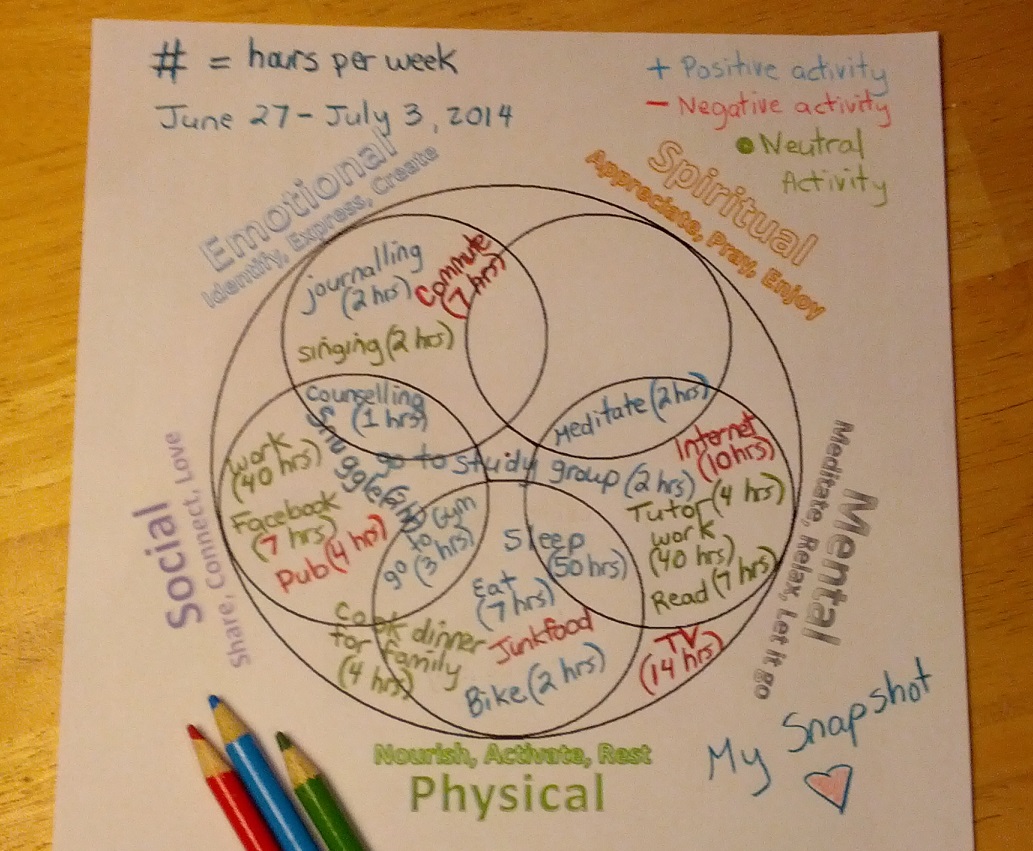 # = hours per week
June 27 - July 3, 2014
+ Positive activity
- Negative activity
● Neutral
Activity
Emotional
Identify, Express, Create
Spiritual
Appreciate, Pray, Enjoy
journalling
(2 hrs)
Commute
(7 hrs)
singing (2 hrs)
counselling
(1 hrs)
Snuggle
Meditate (2 hrs)
go to study group (2 hrs)
work
(40 hrs)
Facebook
(7 hrs)
Pub (4 hrs)
Internet
(10 hrs)
Tutor (4 hrs)
work
(40 hrs)
Read (7 hrs)
go to Gym
(3 hrs)
Sleep
(50 hrs)
Eat
(7 hrs)
Junkfood
Bike (2 hrs)
Cook dinner
for family
(4 hrs)
TV
(14 hrs)
Social
Share, Connect, Love
Mental
Meditate, Relax, Let it go
Nourish, Activate, Rest
Physical
My Snapshot